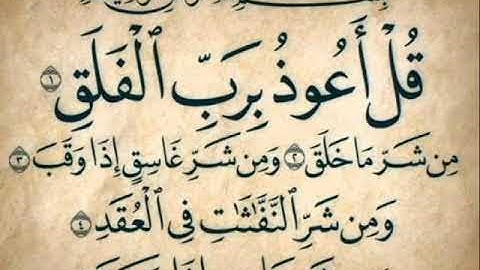 قُلْ أَعُوذُ بِرَبِّ ٱلْفَلَقِ ١
مِن شَرِّ مَا خَلَقَ ٢ وَمِن شَرِّ غَاسِقٍ إِذَا وَقَبَ ٣
وَمِن شَرِّ ٱلنَّفَّٰثَٰتِ فِى ٱلْعُقَدِ ٤